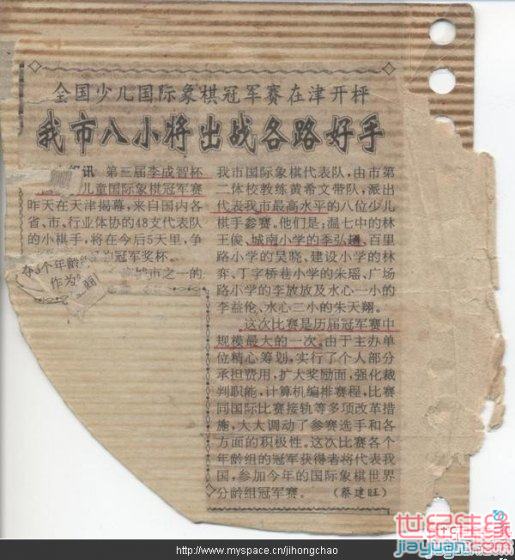 全国少儿国际象棋冠军赛在津开枰
我市八小将出战各路好手
讯 第三届李成智杯
儿童国际象棋冠军赛
昨天在天津揭幕,来自国内各
省、市,行业体协的48支代表队
的小棋手,将在今后5天里,争
夺 个年龄 冠军奖杯。
作为 城市之一的
我市国际象棋代表队,由市第
二体校教练黄希文带队,派出
代表我市最高水平的八位少儿
棋手参赛。他们是:温七中的林
王俊、城南小学的李弘 、百里
路小学的吴晓、建设小学的林
弈、丁字桥巷小学的朱瑶、广场
路小学的李放放及水心一小的
李益伦、水心三小的朱天翔。
这次比赛是历届冠军赛中
规模最大的一次。由于主办单
位精心筹划,实行了个人部分
承担费用,扩大奖励面,强化裁
判职能,计算机编排赛程,比赛
同国际比赛接轨等多项改革措
施,大大调动了参赛选手和各
方面的积极性。这次比赛各个
年龄组的冠军获得者将代表我
国,参加今年的国际象棋世界
分龄组冠军赛。 (蔡建旺)
世纪佳缘
jiayuan.com
http://www.myspace.cn/jihongchao